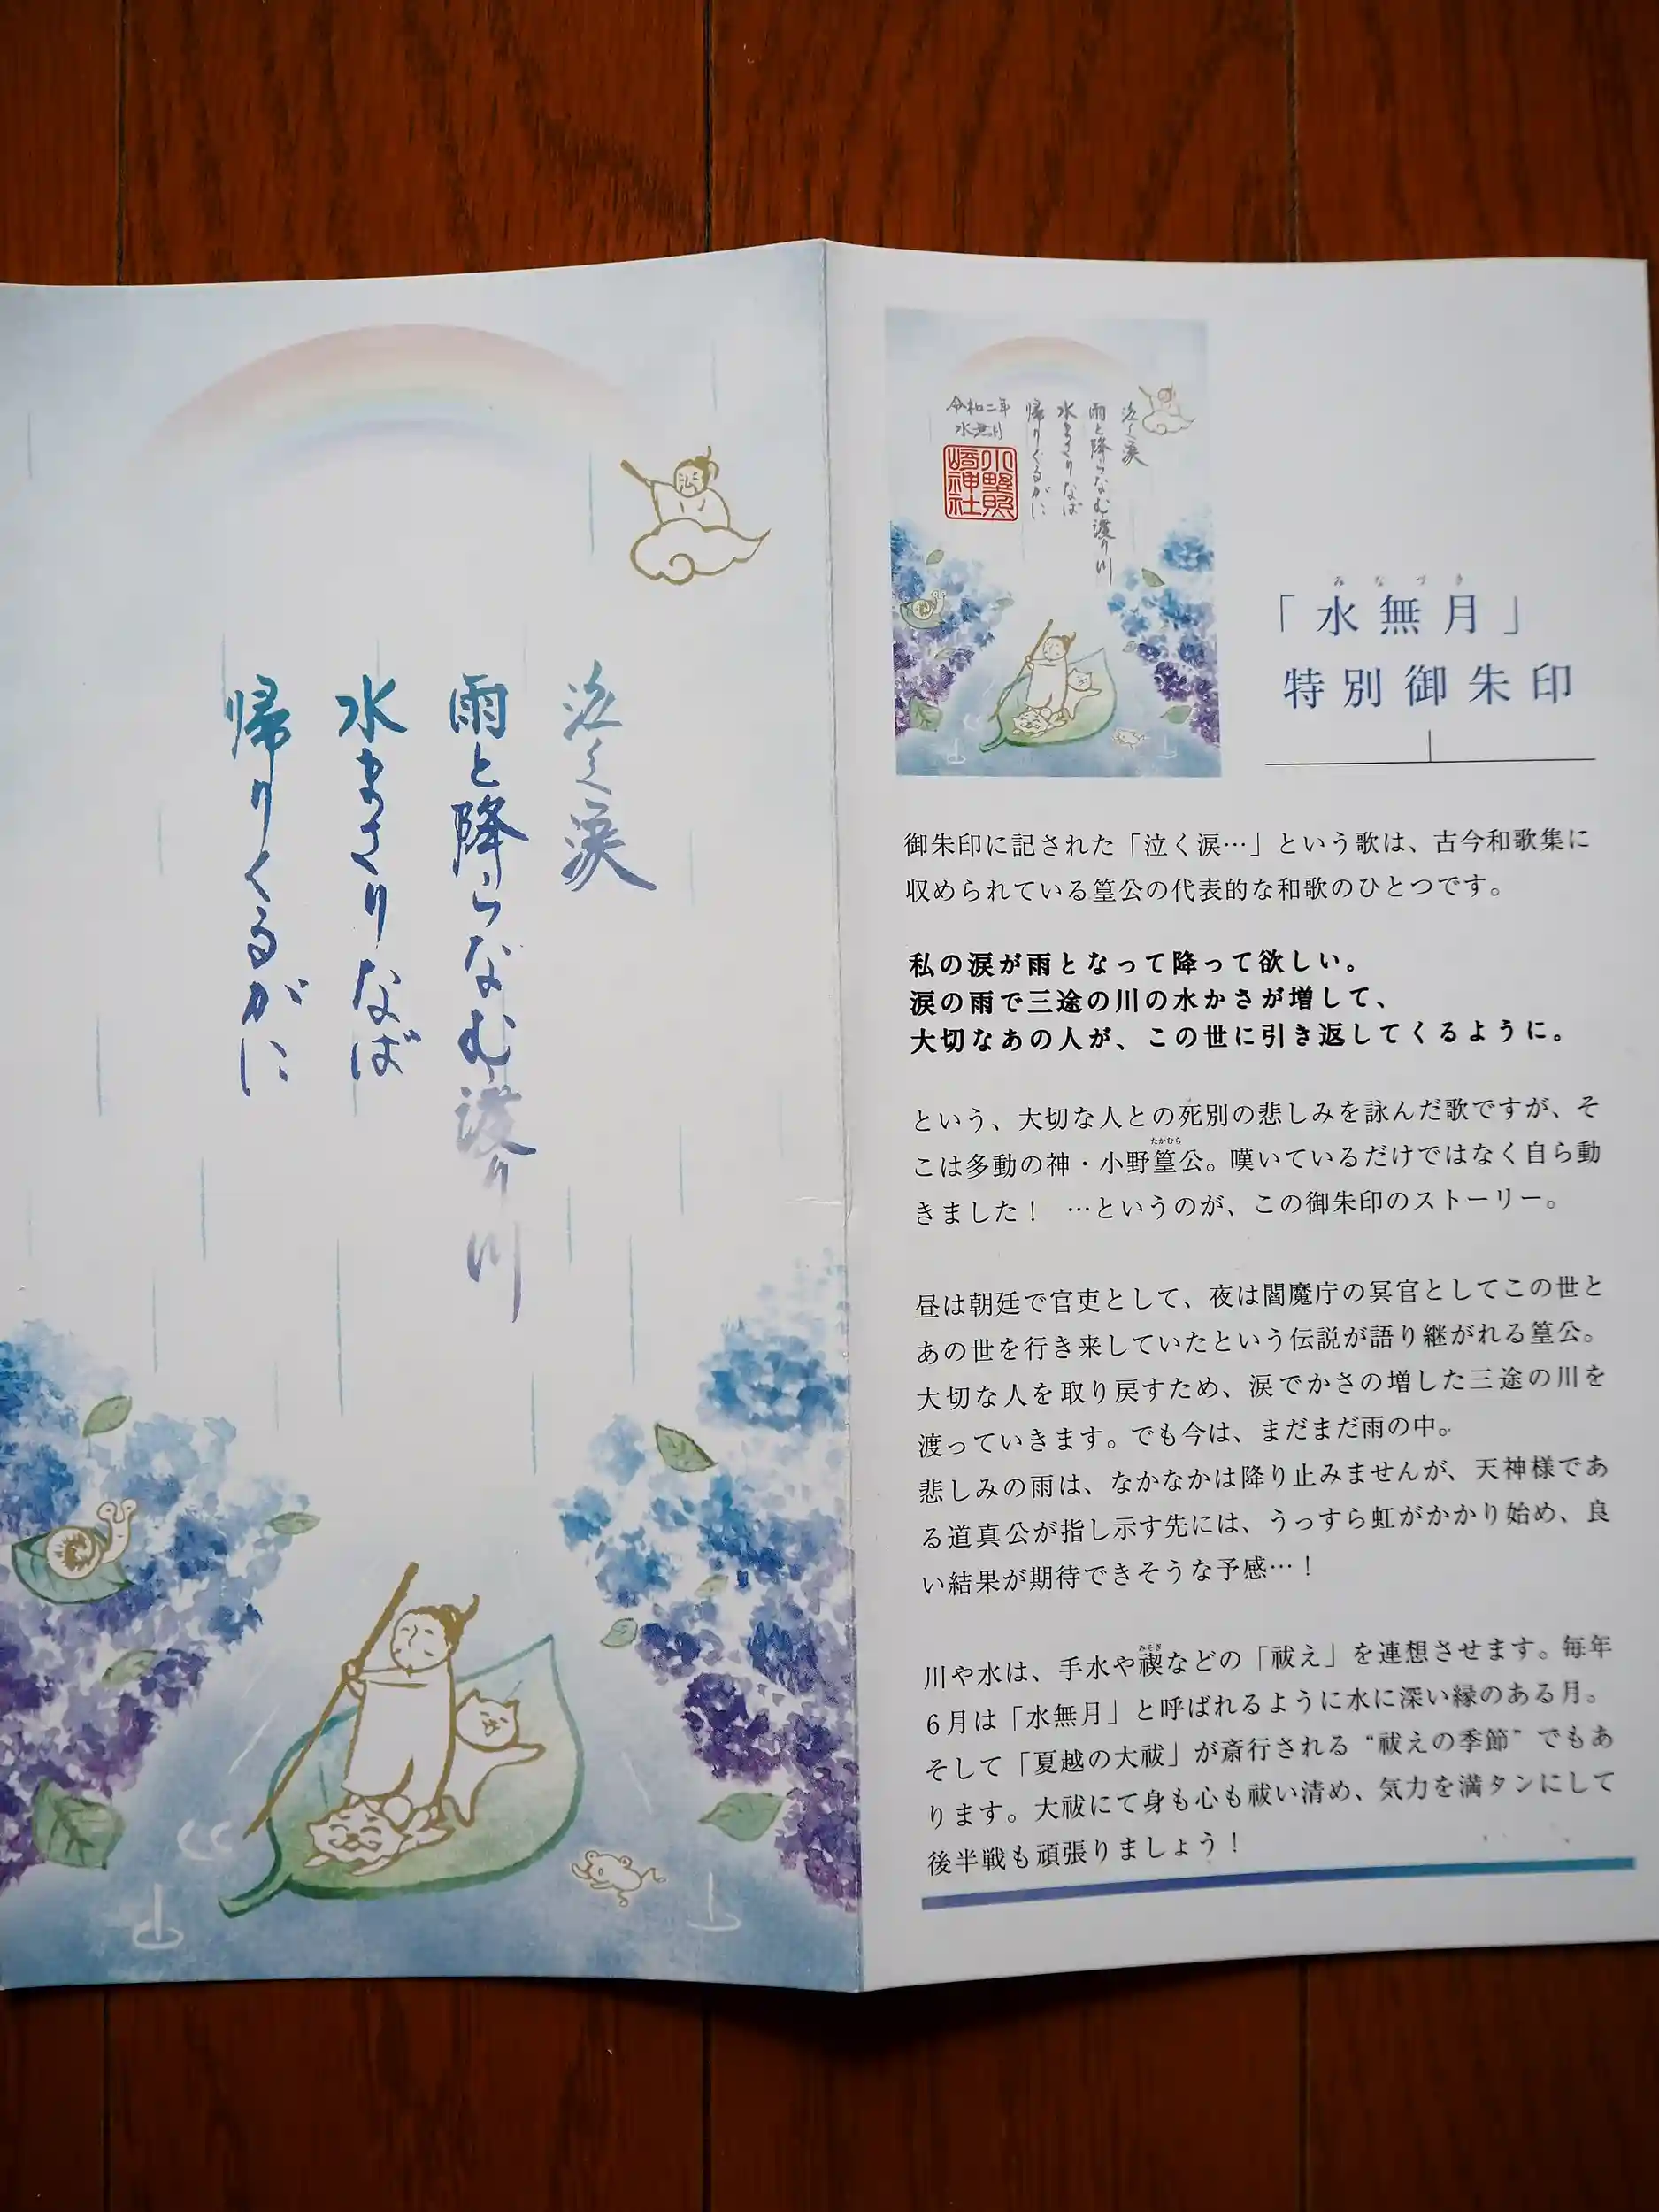 泣く涙
雨と降らなむ渡り川
水まさりなば
帰りくるがに
泣く涙
雨と降らなむ渡り川
水まさりなば
帰りくるがに
令和二年
水無月
小野照
崎神社
みなづき
「水無月」
特別御朱印
御朱印に記された「泣く涙…」という歌は、古今和歌集に
収められている篁公の代表的な和歌のひとつです。
私の涙が雨となって降って欲しい。
涙の雨で三途の川の水かさが増して、
大切なあの人が、この世に引き返してくるように。
という、大切な人との死別の悲しみを詠んだ歌ですが、そ
たかむら
こは多動の神・小野篁公。嘆いているだけではなく自ら動
きました！　…というのが、この御朱印のストーリー。
昼は朝廷で官吏として、夜は閻魔庁の冥官としてこの世と
あの世を行き来していたという伝説が語り継がれる篁公。
大切な人を取り戻すため、涙でかさの増した三途の川を
渡っていきます。でも今は、まだまだ雨の中。
悲しみの雨は、なかなかは降り止みませんが、天神様であ
る道真公が指し示す先には、うっすら虹がかかり始め、良
い結果が期待できそうな予感…！
みそぎ
川や水は、手水や禊などの「祓え」を連想させます。毎年
6月は「水無月」と呼ばれるように水に深い縁のある月。
そして「夏越の大祓」が斎行される“祓えの季節”でもあ
ります。大祓にて身も心も祓い清め、気力を満タンにして
後半戦も頑張りましょう！